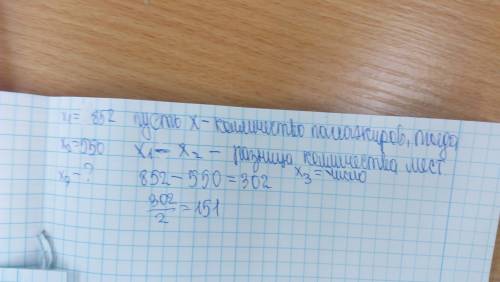 x₁= 852 пусть x - количество пассажиров, тогда
x₂=550 x₁ - x₂ - разница количества мест
x₃ - ? 852 - 550 = 302 x₃ = число
302/2 = 151